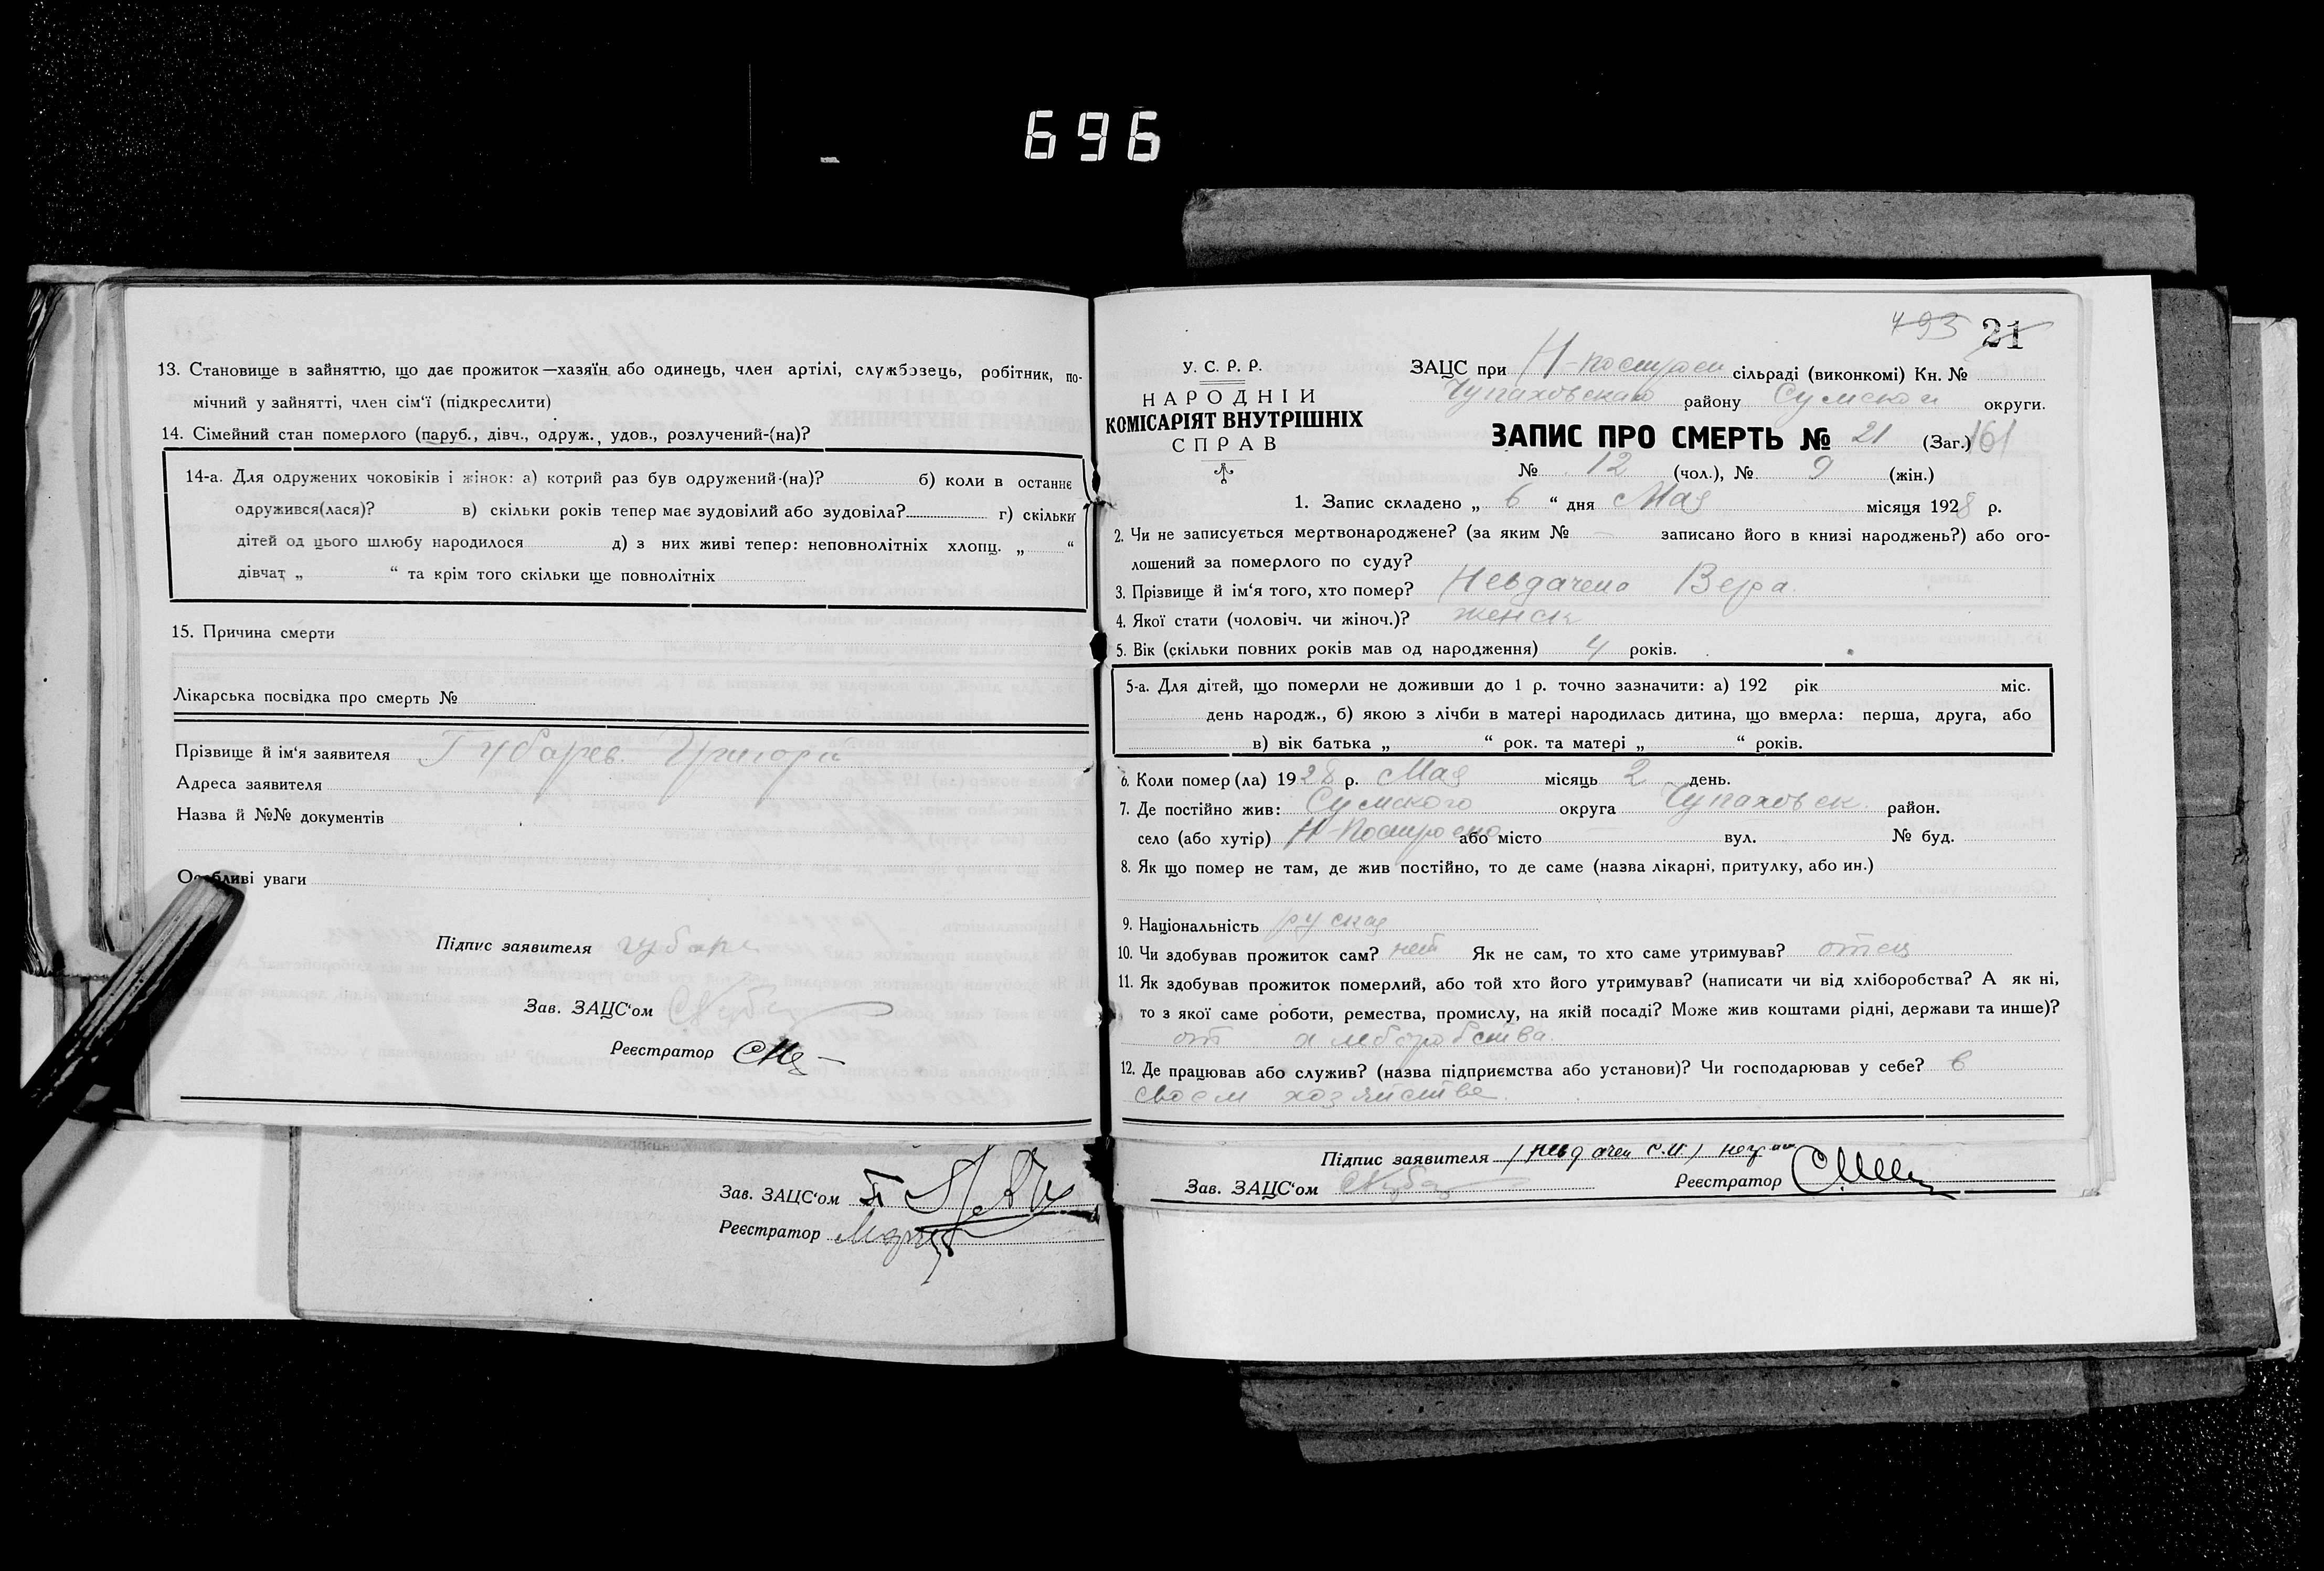 696
13. Становище в зайняттю, що дає прожиток—хазяїн або одинець, член артілі, службовець, робітник, по-
мічний у зайнятті, член сім'ї (підкреслити)
14. Сімейний стан померлого (паруб., дівч., одруж., удов., розлучений-(на)?
14-а. Для одружених чоковіків і жінок: а) котрий раз був одружений-(на)? б) коли в останнє
одружився(лася)? в) скільки років тепер має зудовілий або зудовіла? г) скільки
дітей од цього шлюбу народилося д) з них живі тепер: неповнолітніх хлопц. „ “
дівчат „ “ та крім того скільки ще повнолітніх
15. Причина смерти
Лікарська посвідка про смерть №
Прізвище й ім'я заявителя Губарев. Григори
Адреса заявителя
Назва й №№ документів
Особливі уваги
Підпис заявителя губаре
Зав. ЗАЦС'ом
Реєстратор
Зав. ЗАЦС'ом
Реєстратор
493 21
У. С. Р. Р.
НАРОДНІЙ
КОМІСАРІЯТ ВНУТРІШНІХ
СПРАВ
ЗАЦС при Н-построен сільраді (виконкомі) Кн. №
Чупаховскаго району Сумской округи.
ЗАПИС ПРО СМЕРТЬ № 21 (Заг.) 161
№ 12 (чол.), № 9 (жін.)
1. Запис складено „ 6 “ дня Мая місяця 1928 р.
2. Чи не записується мертвонароджене? (за яким № — записано його в книзі народжень?) або ого-
лошений за померлого по суду?
3. Прізвище й ім'я того, хто помер? Невдачена Вера.
4. Якої стати (чоловіч. чи жіноч.)? женск
5. Вік (скільки повних років мав од народження) 4 років.
5-а. Для дітей, що померли не доживши до 1 р. точно зазначити: а) 192 рік міс.
день народж., б) якою з лічби в матері народилась дитина, що вмерла: перша, друга, або
в) вік батька „ “ рок. та матері „ “ років.
6. Коли помер (ла) 1928 р. Мая місяць 2 день.
7. Де постійно жив: Сумского округа Чупаховск. район.
село (або хутір) Н-Построено або місто вул. № буд.
8. Як що помер не там, де жив постійно, то де саме (назва лікарні, притулку, або ин.)
9. Національність руская
10. Чи здобував прожиток сам? нет Як не сам, то хто саме утримував? отец
11. Як здобував прожиток померлий, або той хто його утримував? (написати чи від хліборобства? А як ні,
то з якої саме роботи, ремества, промислу, на якій посаді? Може жив коштами рідні, держави та инше)?
от хлеборобства.
12. Де працював або служив? (назва підприємства або установи)? Чи господарював у себе? в
своем хозяйстве.
Підпис заявителя (Невдачен С.И.) неграм
Зав. ЗАЦС'ом Реєстратор